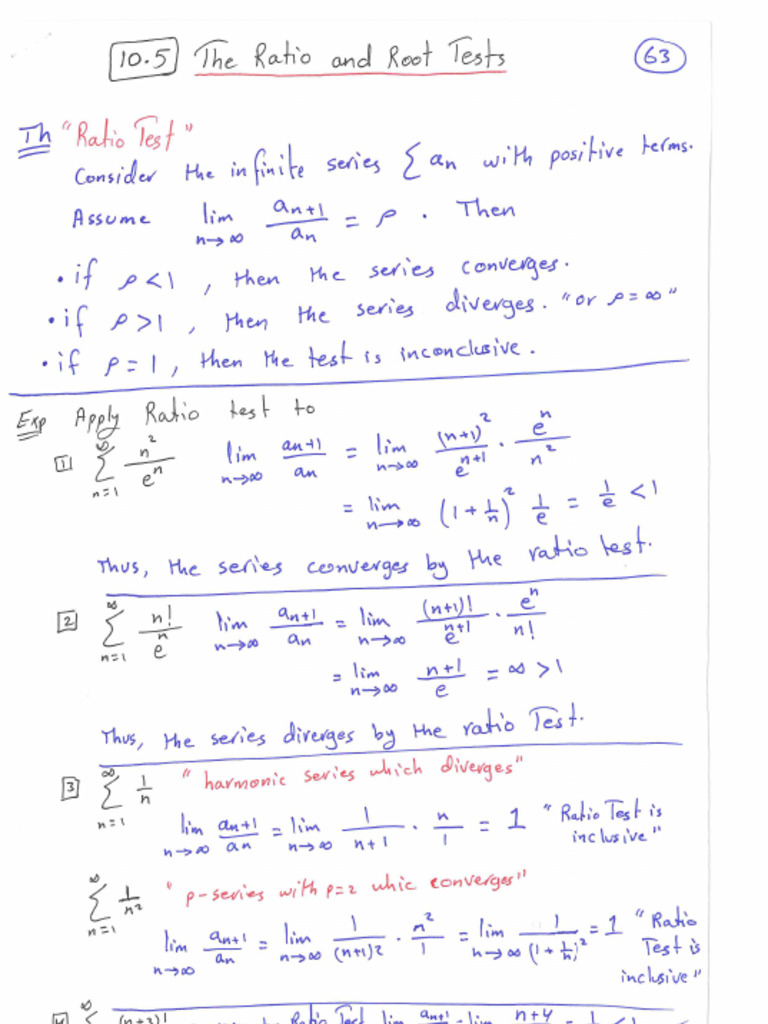 10.5 The Ratio and Root Tests 63
Th "Ratio Test"
Consider the infinite series ∑ an with positive terms.
Assume lim n→∞ an+1/an = ρ. Then
• if ρ<1, then the series converges.
• if ρ>1, then the series diverges. "or ρ=∞"
• if ρ=1, then the test is inconclusive.
Exp Apply Ratio test to
1 ∑ n=1 ∞ n²/eⁿ lim n→∞ an+1/an = lim n→∞ (n+1)²/eⁿ⁺¹ · eⁿ/n²
= lim n→∞ (1+1/n)² 1/e = 1/e <1
Thus, the series converges by the ratio test.
2 ∑ n=1 ∞ n!/eⁿ lim n→∞ an+1/an = lim n→∞ (n+1)!/eⁿ⁺¹ · eⁿ/n!
= lim n→∞ n+1/e = ∞ >1
Thus, the series diverges by the ratio Test.
3 ∑ n=1 ∞ 1/n "harmonic series which diverges"
lim n→∞ an+1/an = lim n→∞ 1/n+1 · n/1 = 1 "Ratio Test is
inclusive"
∑ n=1 ∞ 1/n² "p-series with p=2 whic converges"
lim n→∞ an+1/an = lim n→∞ 1/(n+1)2 · n²/1 = lim n→∞ 1/(1+1/n)² = 1 "Ratio
Test is
inclusive"